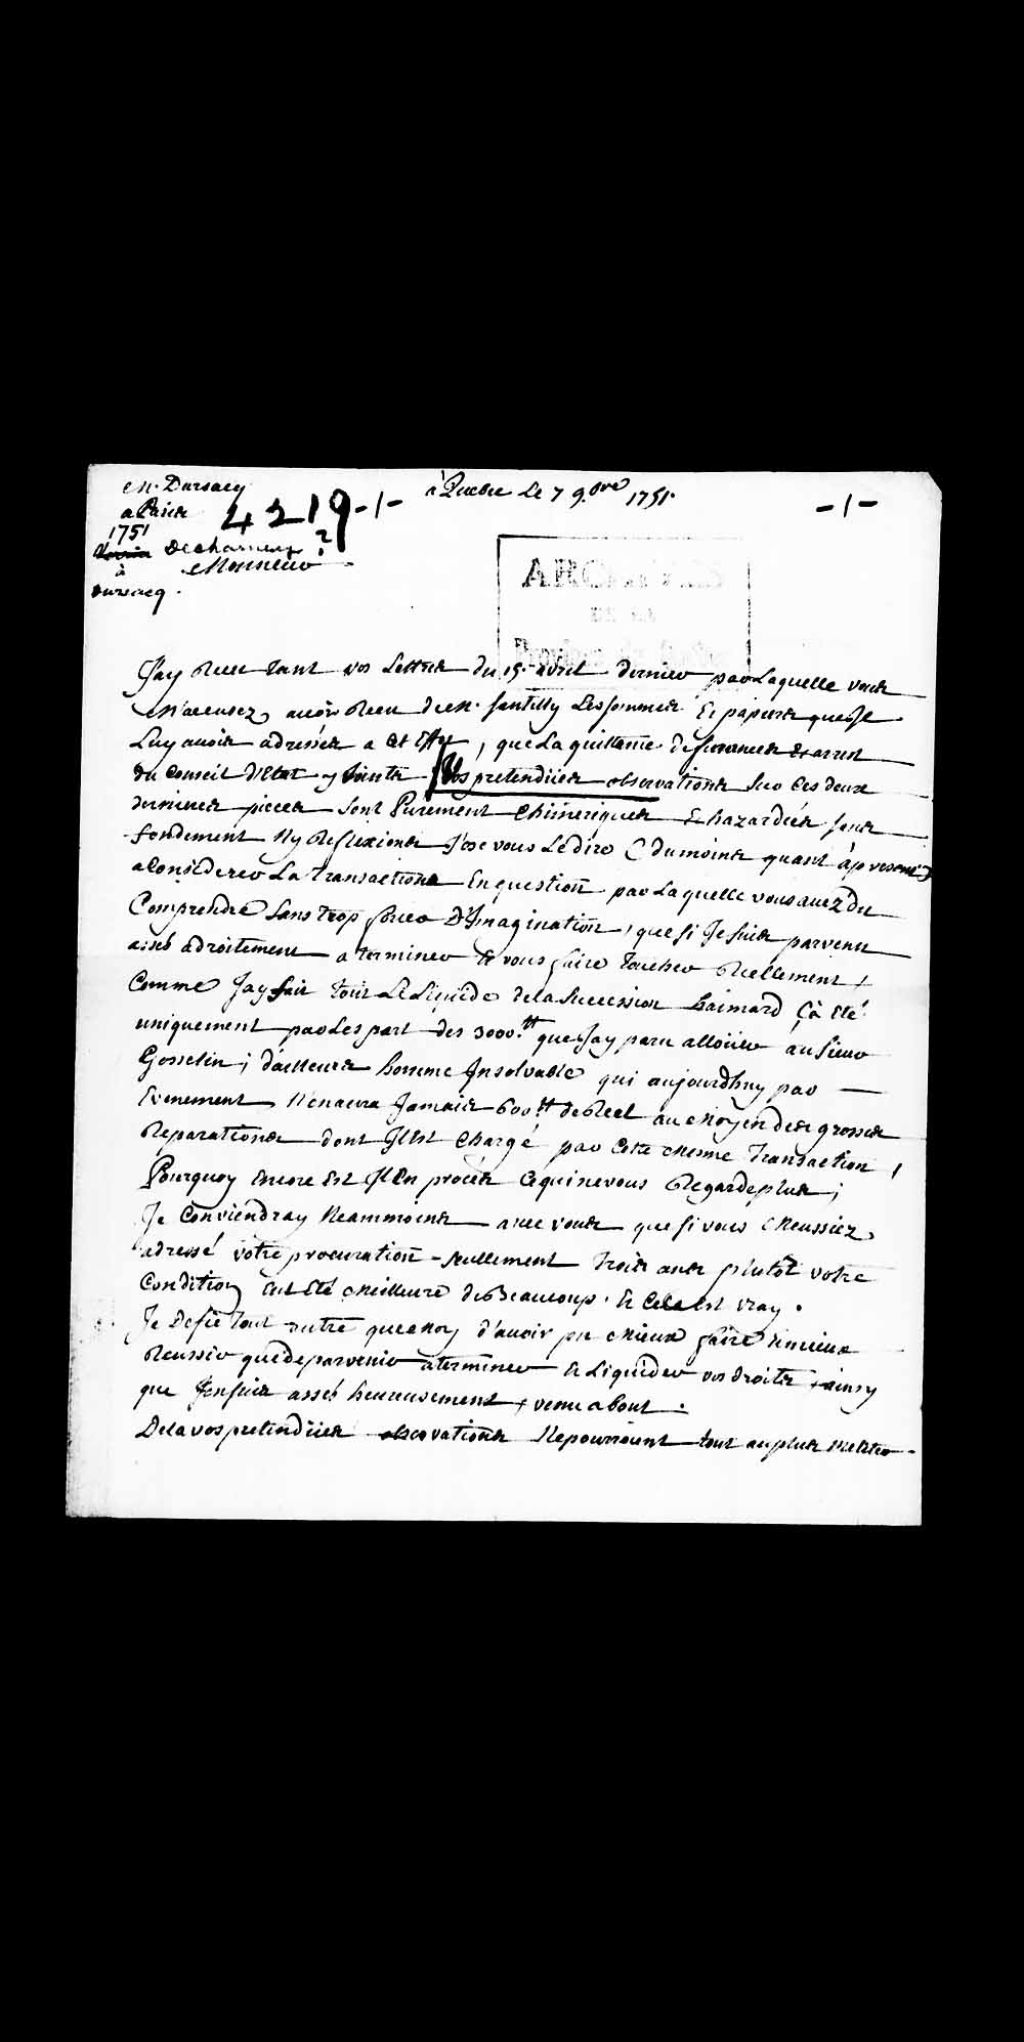 M. Dursacq
a Paris
1751
à
Dursacq.
4219 -1-
Decharnay ?
Monsieur
à Quebec Le 7 9.bre 1751.
-1-
ARCHIVES
DE LA
Jay Receu tant vos Lettres du 15. avril dernier par Laquelle vous
M'accusez avoir Receu de M. Santilly Les sommes Et papiers que Je
Luy avois adressés a cet Effet, que La quittance de Survances & arrest
du Conseil d'Etat y Joints Vos pretendües observations Sur Ces deux
dernieres pieces Sont Purement Chimeriques & hazardées sans
fondement Ny Reflexions J'ose vous Le dire (du moins quant àpresent)
a Considerer La transactions En question par Laquelle vous avez du
Comprendre Sans trop forcer D'Imagination, que si Je suis parvenu
assés adroitement a terminer & vous faire toucher Reellement,
Comme Jay fait tout Le Liquide de la Succession haimard Çà été
uniquement par Les part des 3000.tt que Jay paru alloüer au Sieur
Gosselin; d'ailleurs homme Insolvable qui aujourdhuy par
Evenement N'en aura Jamais 600.tt de Reel au Moyen des grosses
Reparations dont Il Est Chargé par Cette mesme Transaction,
Pourquoy encore Est Il En procés Ce qui ne vous Regarde plus;
Je Conviendray Neammoins avec vous que si vous M'eussiez
adressé vôtre procuration seullement trois ans plutôt votre
Condition Eut Eté Meilleure de Beaucoup. Et Cela Est vray.
Je Defie tout autre que Moy d'avoir pu Mieux faire N'y mieux
Reussir que de parvenir a terminer & Liquider vos droits, ainsy
que J'en suis assés heureusement, venu a bout.
De La vos pretendües observations Ne pourroient tout au plus Meriter